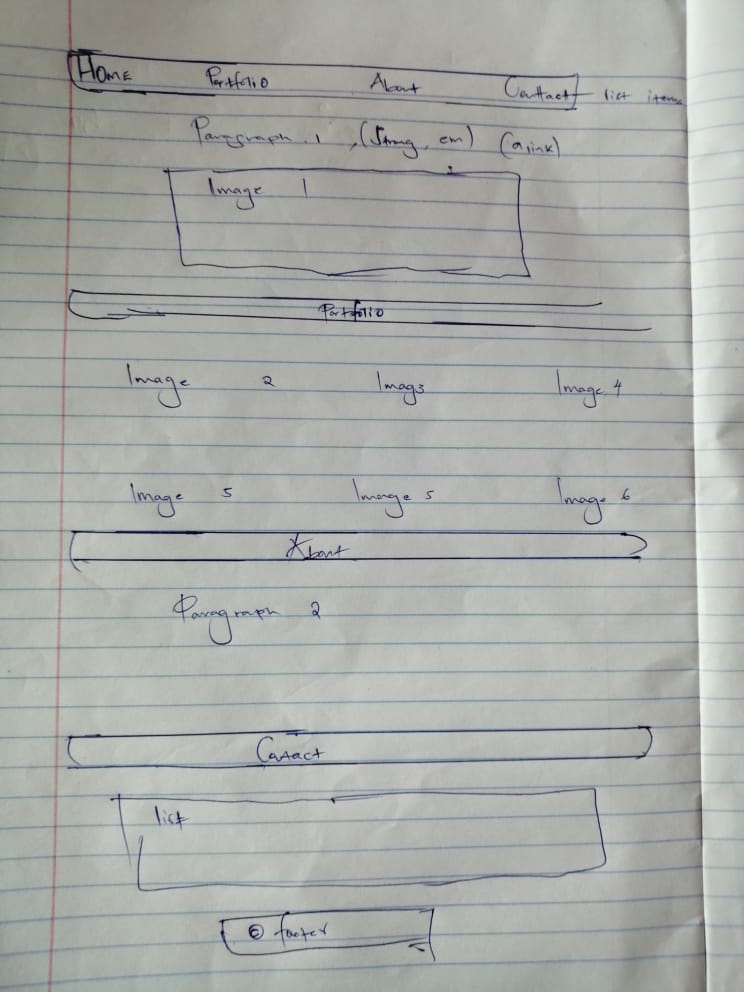 HOME Portfolio About Contact list items
Paragraph 1, (Strong, em) (a link)
Image 1
Portfolio
Image 2 Imag3 Image 4
Image 5 Image 5 Image 6
About
Paragraph 2
Contact
list
© footer